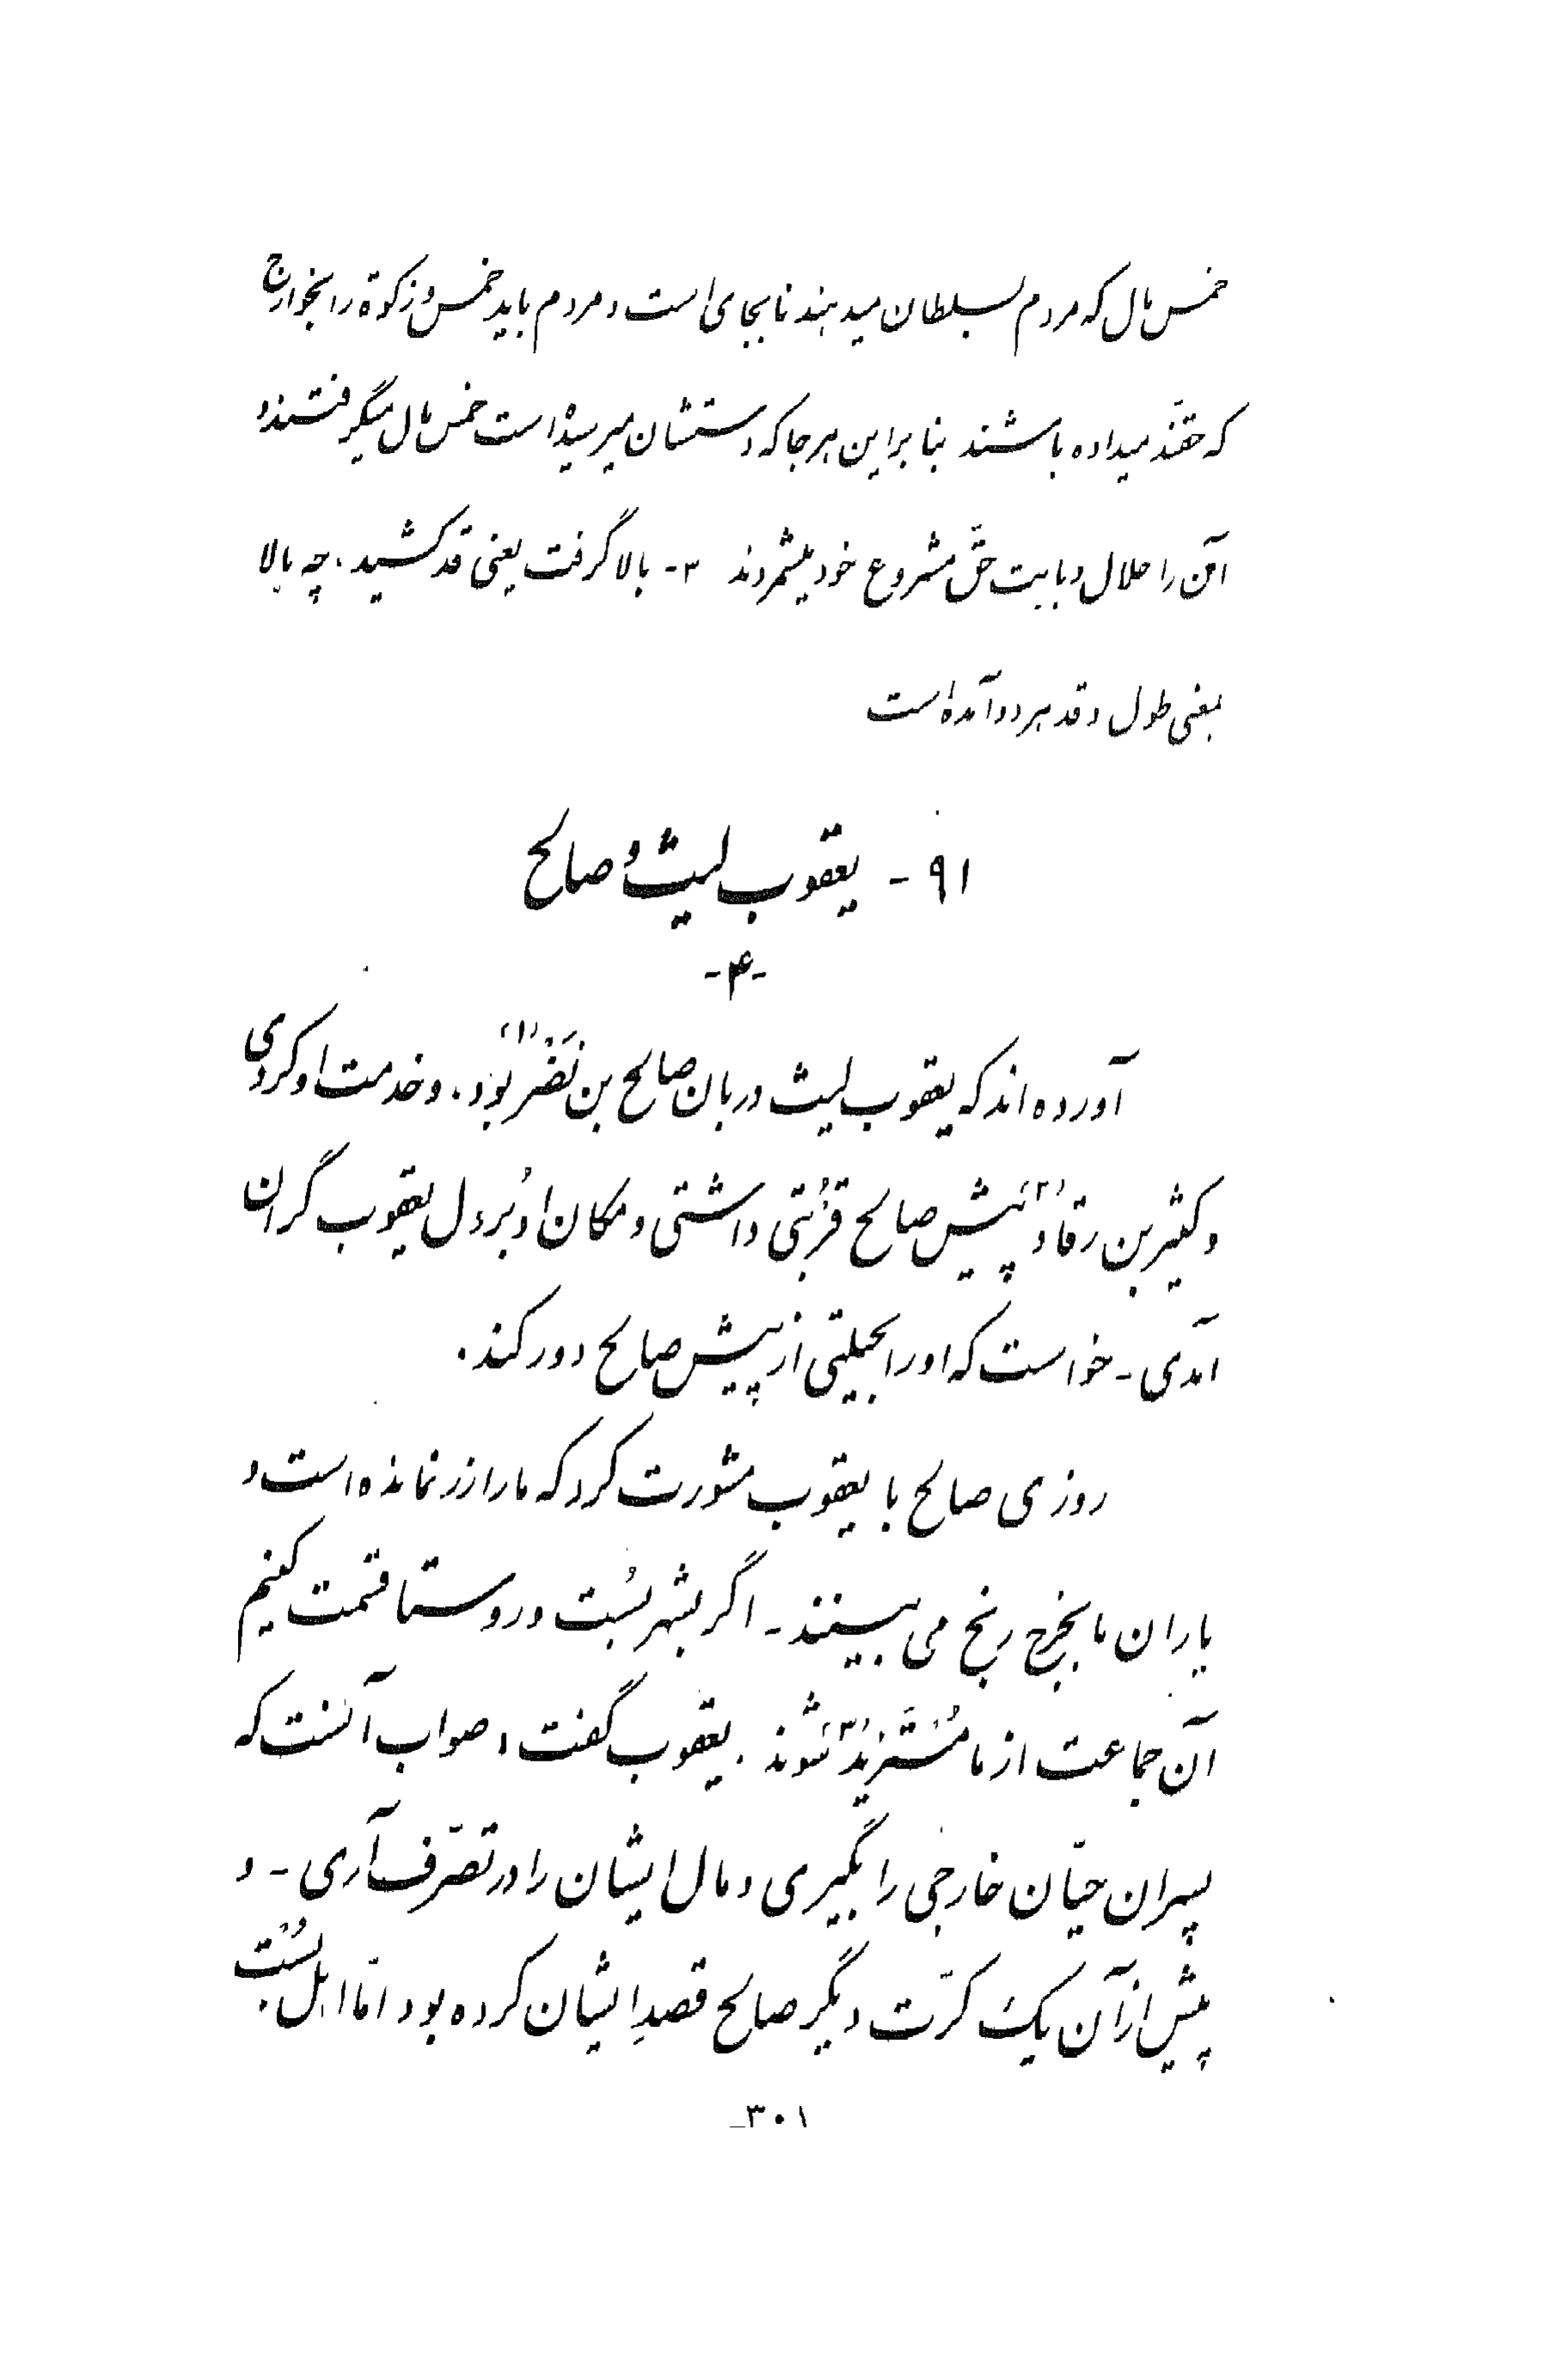 خمس مال که مردم بسلطان میدهند نابجای است و مردم باید خمس و زکوة را بخوارج
که حقند میداده باشند بنابراین هرجا که دستشان میرسیده است خمس مال میگرفتند و
آن را حلال و بابت حقّ مشروع خود میشمردند ۳- بالا گرفت یعنی قد کشید، چه بالا
بمعنی طول و قد هر دو آمده است
۹۱ - یعقوب لیث و صالح
-۴-
آورده‌اند که یعقوب لیث دربان صالح بن نَضْر (۱) بود، و خدمت او کردی
و کثیر بن رقاد (۲) پیش صالح قُربتی داشتی و مکان او بر دل یعقوب گران
آمدی - خواست که او را بحیلتی از پیش صالح دور کند.
روزی صالح با یعقوب مشورت کرد که ما را زر نمانده است و
یاران ما بخرج رنج می‌بینند - اگر بشهر بُست و روستا قسمت کنیم
آن جماعت از ما مُسْتَزید (۳) شوند. یعقوب گفت، صواب آنست که
پسران حیّان خارجی را بگیری و مال ایشان را در تصرّف آری - و
پیش از آن یک کرّت دیگر صالح قصدِ ایشان کرده بود امّا اهل بُسْت
-۳۰۱